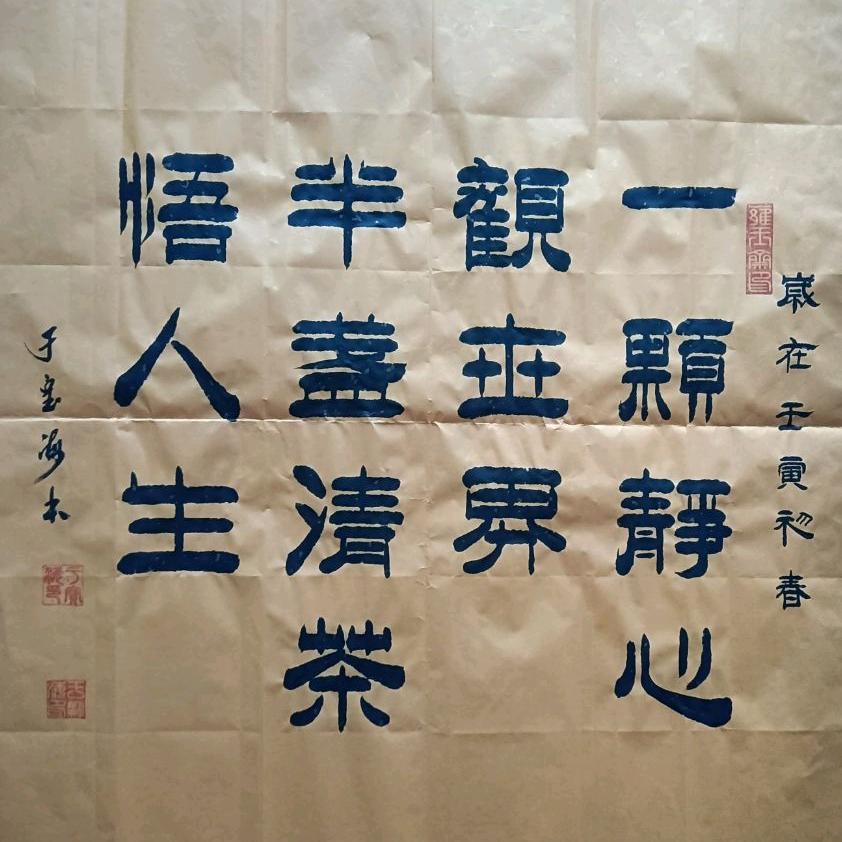 歲在壬寅初春
一顆靜心
觀世界
半盞清茶
悟人生
于寳海书